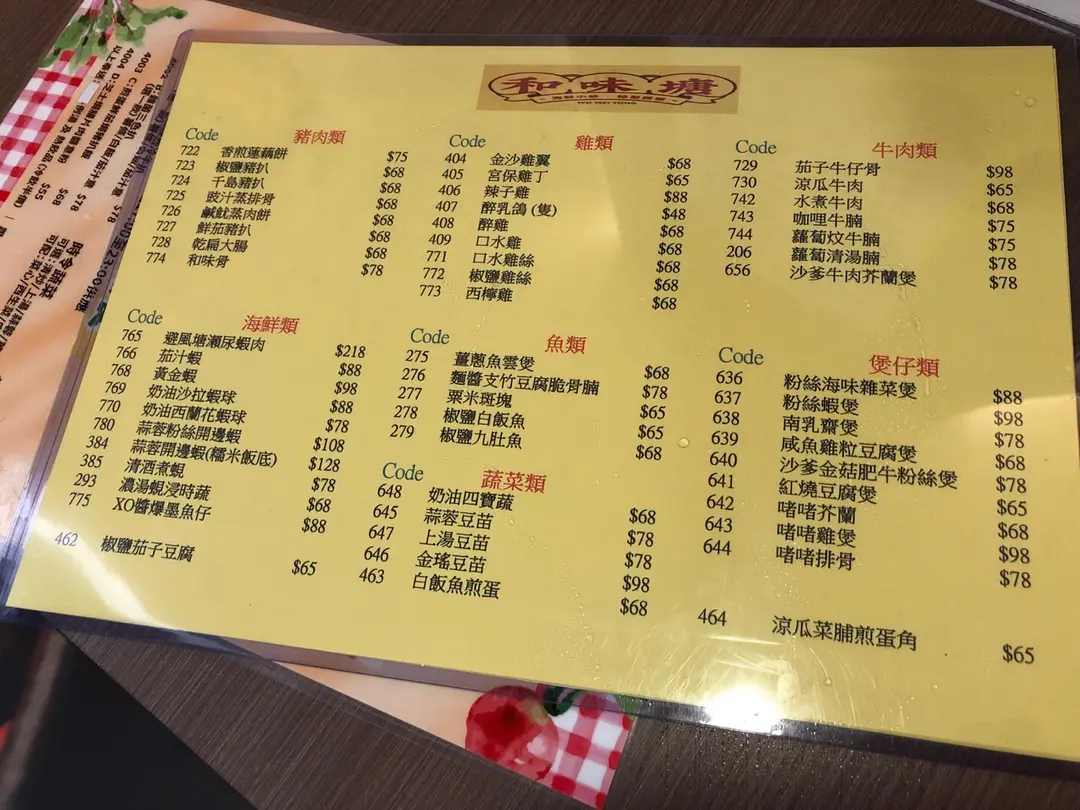 和味塘
WO MEI TONG
Code 豬肉類
722 香煎蓮藕餅 $75
723 椒鹽豬扒 $68
724 千島豬扒 $68
725 豉汁蒸排骨 $68
726 鹹魷蒸肉餅 $68
727 鮮茄豬扒 $68
728 乾扁大腸 $68
774 和味骨 $78
Code 雞類
404 金沙雞翼 $68
405 宮保雞丁 $65
406 辣子雞 $88
407 醉乳鴿(隻) $48
408 醉雞 $68
409 口水雞 $68
771 口水雞絲 $68
772 椒鹽雞絲 $68
773 西檸雞 $68
Code 牛肉類
729 茄子牛仔骨 $98
730 涼瓜牛肉 $65
742 水煮牛肉 $68
743 咖哩牛腩 $75
744 蘿蔔炆牛腩 $75
206 蘿蔔清湯腩 $78
656 沙爹牛肉芥蘭煲 $78
Code 海鮮類
765 避風塘瀨尿蝦肉 $218
766 茄汁蝦 $88
768 黃金蝦 $98
769 奶油沙拉蝦球 $88
770 奶油西蘭花蝦球 $78
780 蒜蓉粉絲開邊蝦 $108
384 蒜蓉開邊蝦(糯米飯底) $128
385 清酒煮蜆 $78
293 濃湯蜆浸時蔬 $68
775 XO醬爆墨魚仔 $88
462 椒鹽茄子豆腐 $65
Code 魚類
275 薑蔥魚雲煲 $68
276 麵醬支竹豆腐脆骨腩 $78
277 粟米斑塊 $65
278 椒鹽白飯魚 $65
279 椒鹽九肚魚 $68
Code 蔬菜類
648 奶油四寶蔬 $68
645 蒜蓉豆苗 $78
647 上湯豆苗 $78
646 金瑤豆苗 $98
463 白飯魚煎蛋 $68
Code 煲仔類
636 粉絲海味雜菜煲 $88
637 粉絲蝦煲 $98
638 南乳齋煲 $78
639 咸魚雞粒豆腐煲 $68
640 沙爹金菇肥牛粉絲煲 $78
641 紅燒豆腐煲 $65
642 啫啫芥蘭 $68
643 啫啫雞煲 $98
644 啫啫排骨 $78
464 涼瓜菜脯煎蛋角 $65
4003 $78
4004 $68
$55
時令蔬菜